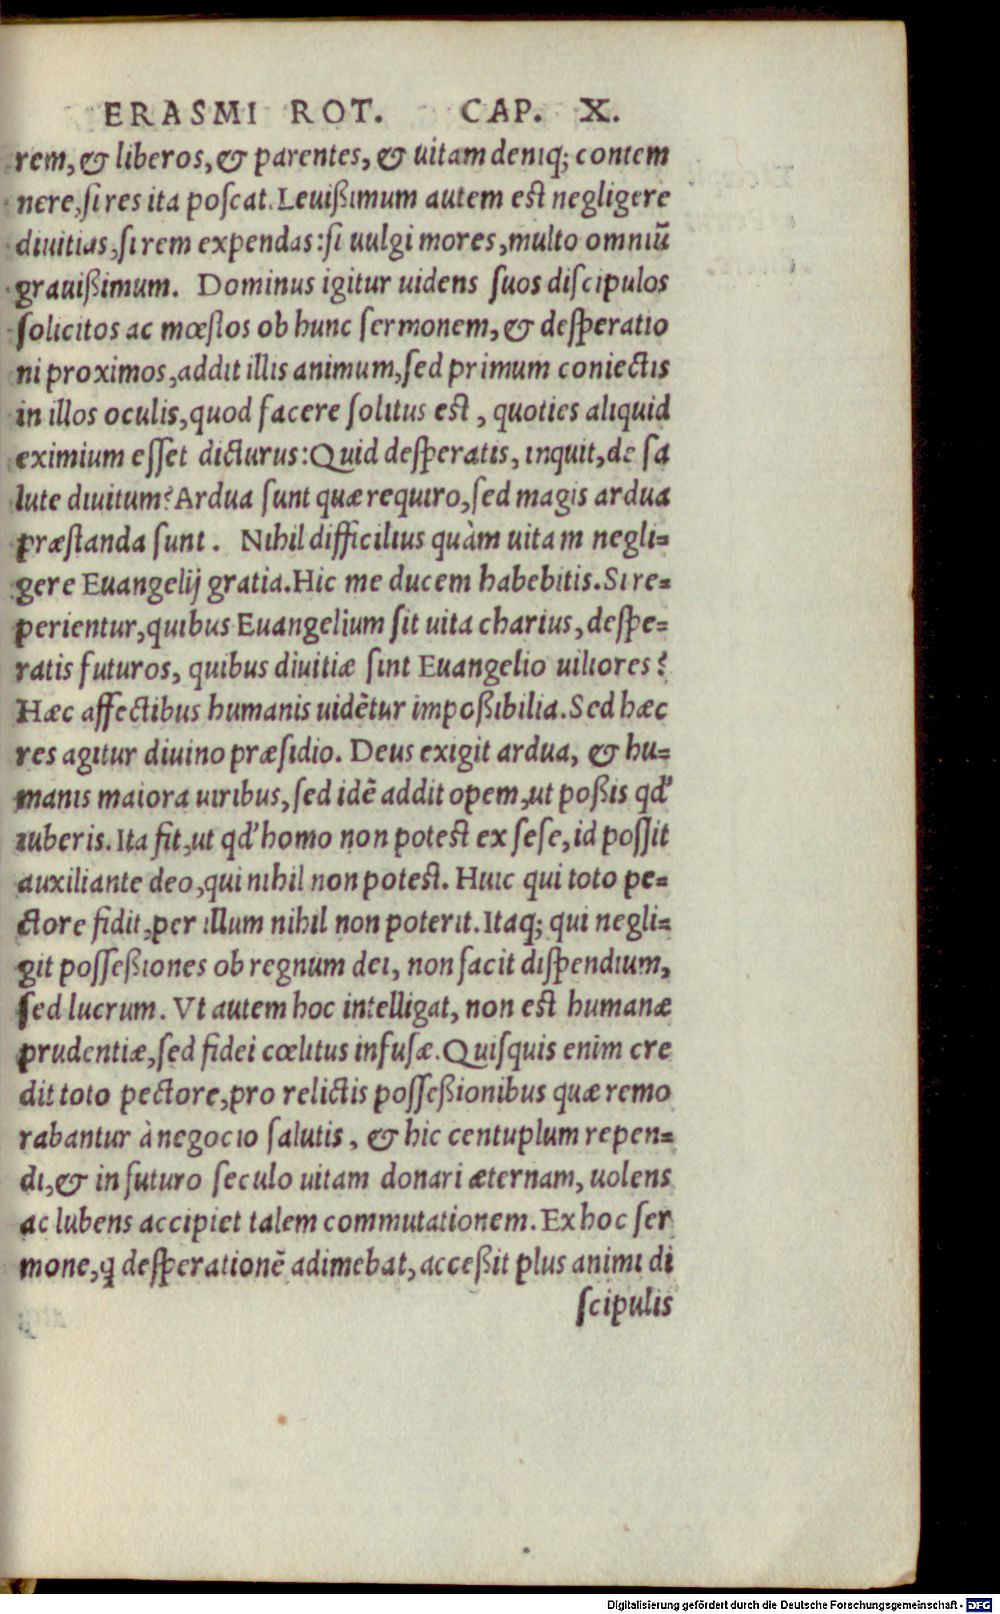 ERASMI ROT. CAP. X.
rem, & liberos, & parentes, & uitam deniq; contem
nere, si res ita poscat. Leuißimum autem est negligere
diuitias, si rem expendas: si uulgi mores, multo omniũ
grauißimum. Dominus igitur uidens suos discipulos
solicitos ac mœstos ob hunc sermonem, & desperatio
ni proximos, addit illis animum, sed primum coniectis
in illos oculis, quod facere solitus est, quoties aliquid
eximium esset dicturus: Quid desperatis, inquit, de sa
lute diuitum? Ardua sunt quæ requiro, sed magis ardua
præstanda sunt. Nihil difficilius quàm uitam negli=
gere Euangelij gratia. Hic me ducem habebitis. Si re=
perientur, quibus Euangelium sit uita charius, despe=
ratis futuros, quibus diuitiæ sint Euangelio uiliores?
Hæc affectibus humanis uidẽtur impoßibilia. Sed hæc
res agitur diuino præsidio. Deus exigit ardua, & hu=
manis maiora uiribus, sed idẽ addit opem, ut poßis qd'
iuberis. Ita fit, ut qd' homo non potest ex sese, id possit
auxiliante deo, qui nihil non potest. Huic qui toto pe=
ctore fidit, per illum nihil non poterit. Itaq; qui negli=
git posseßiones ob regnum dei, non facit dispendium,
sed lucrum. Vt autem hoc intelligat, non est humanæ
prudentiæ, sed fidei cœlitus infusæ. Quisquis enim cre
dit toto pectore, pro relictis posseßionibus quæ remo
rabantur à negocio salutis, & hic centuplum repen=
di, & in futuro seculo uitam donari æternam, uolens
ac lubens accipiet talem commutationem. Ex hoc ser
mone, q desperationẽ adimebat, acceßit plus animi di
scipulis
Digitalisierung gefördert durch die Deutsche Forschungsgemeinschaft - DFG